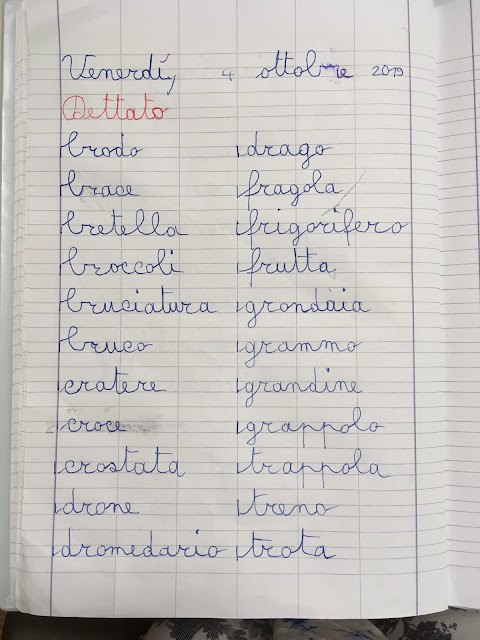 Venerdí, 4 ottobre 2019
Dettato
brodo drago
brace fragola
bretella frigorifero
broccoli frutta
bruciatura grondaia
bruco grammo
cratere grandine
croce grappolo
crostata trappola
drone treno
dromedario trota